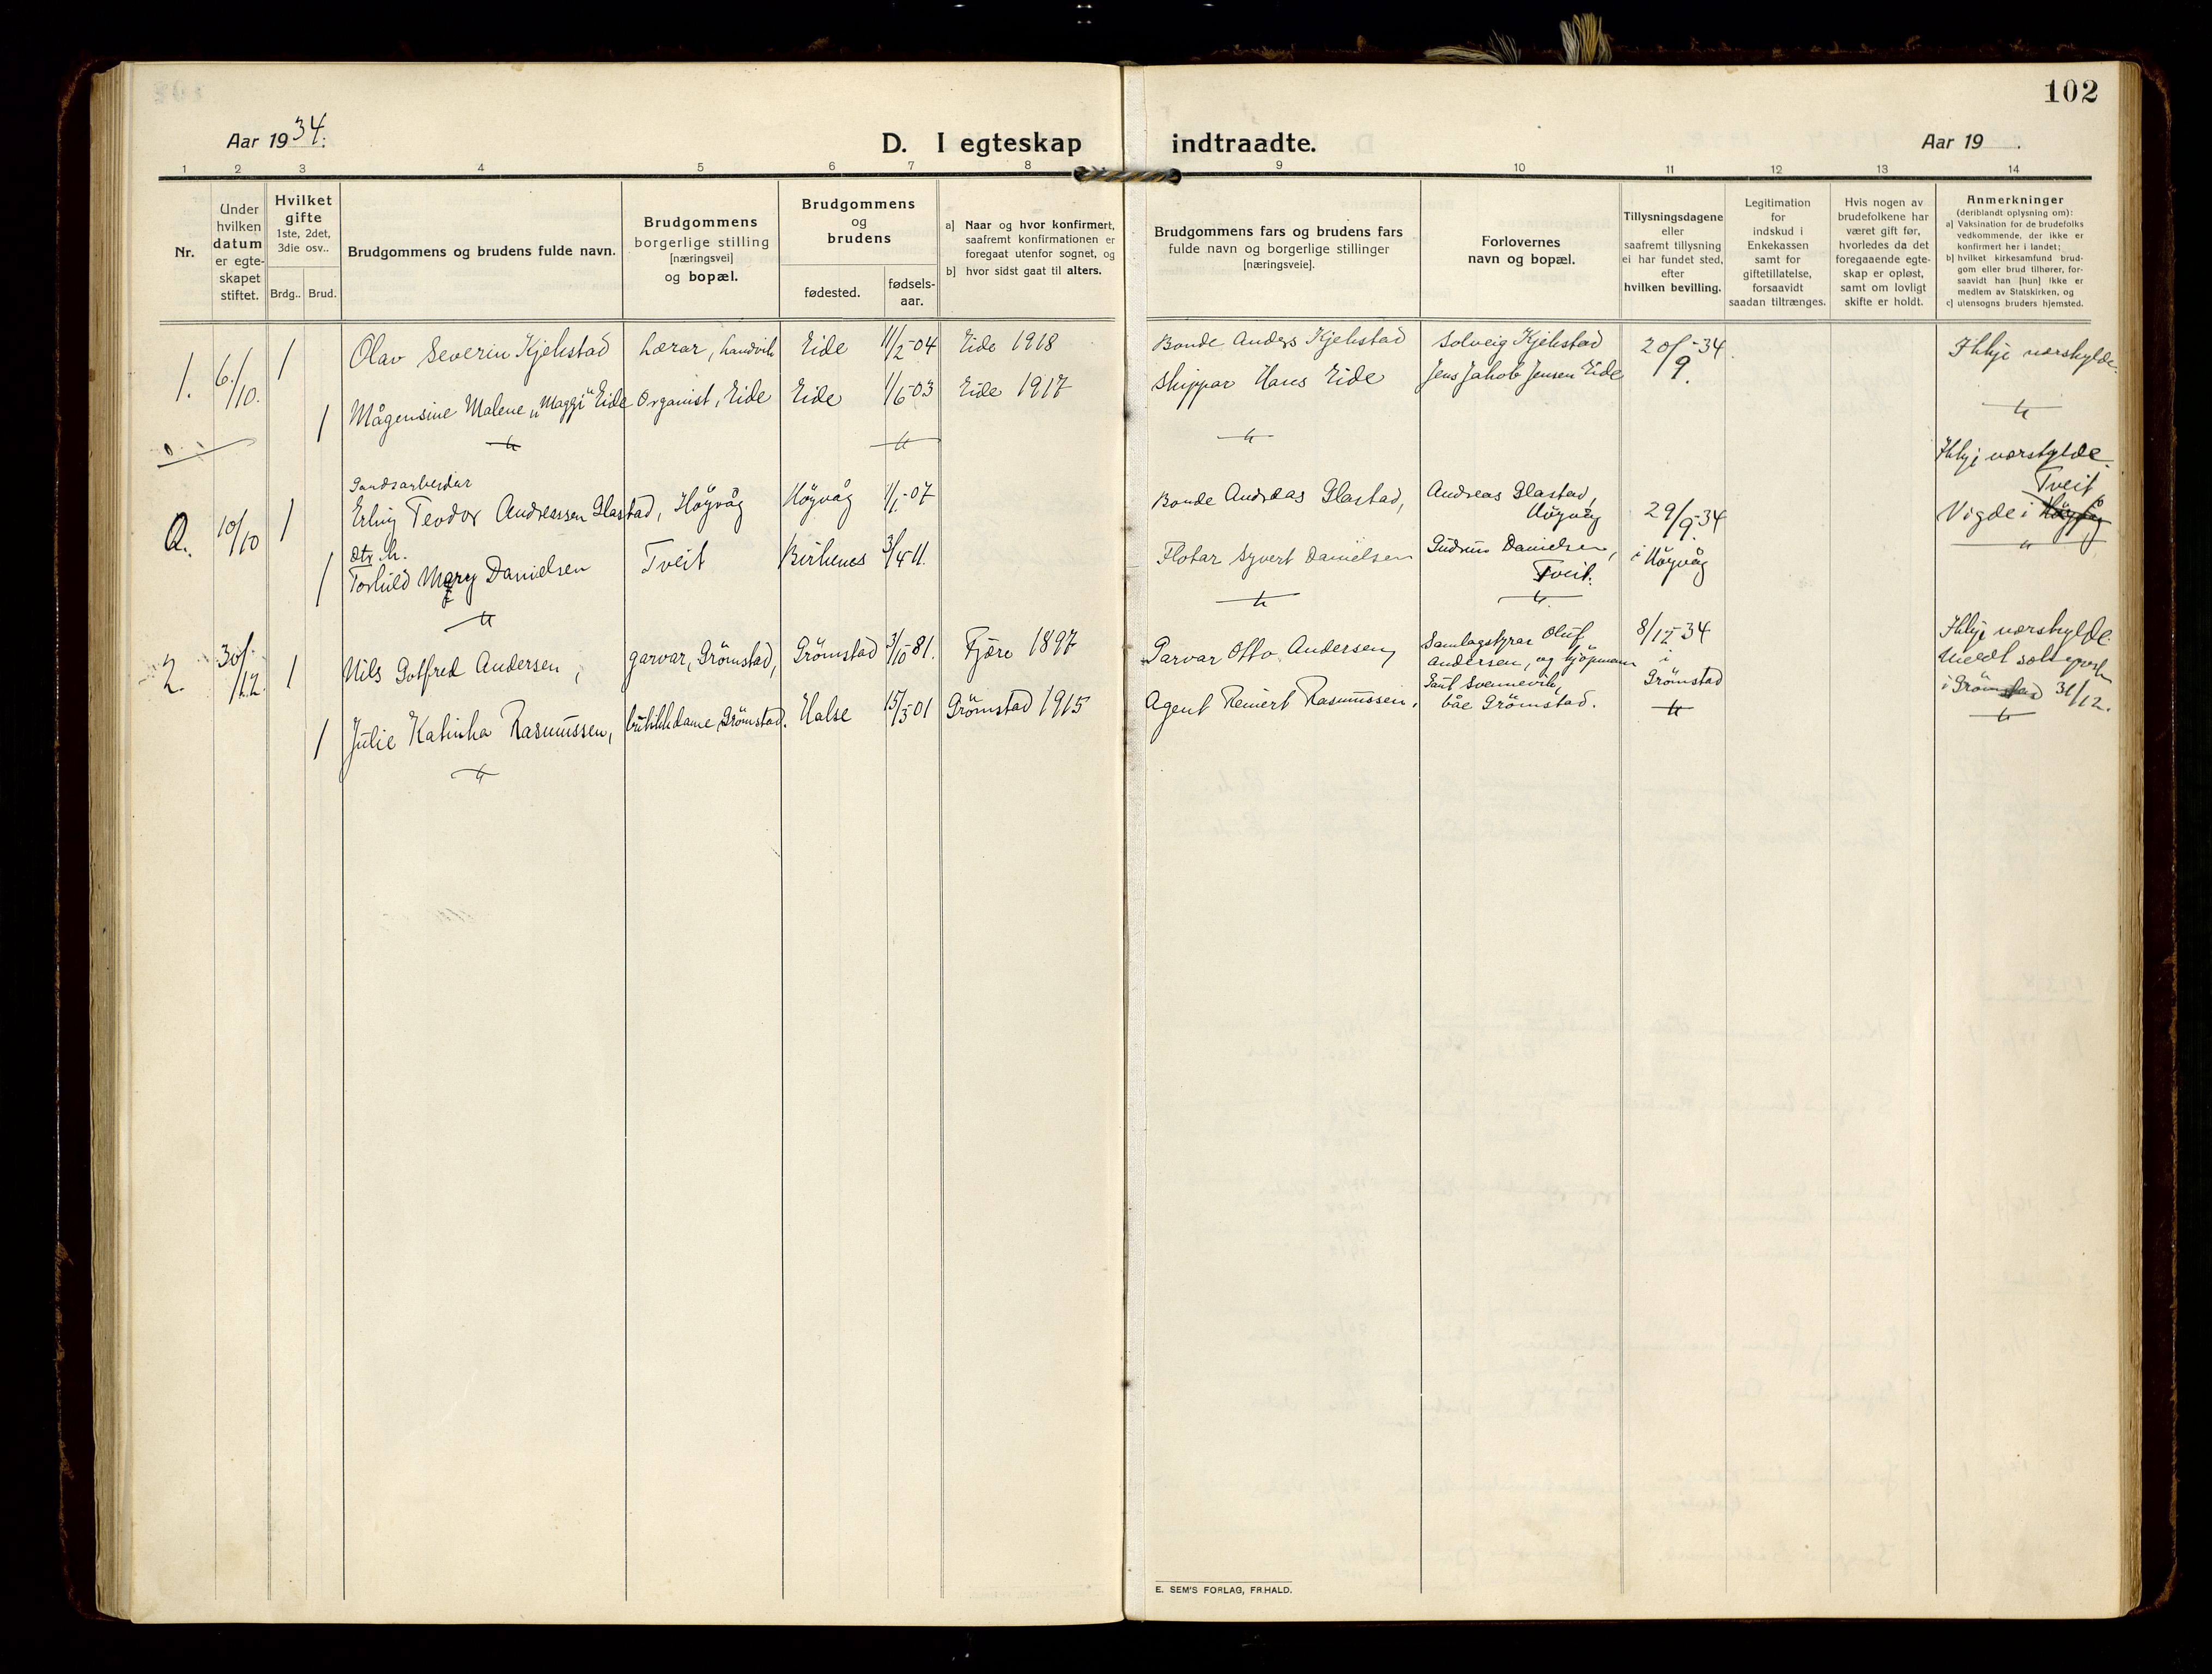 102
Aar 1934.
D. I egteskap indtraadte.
Aar 19   .
1 2 3 4 5 6 7 8 9 10 11 12 13 14
Nr.
Under
hvilken
datum
er egte-
skapet
stiftet.
Hvilket
gifte
1ste, 2det,
3die osv..
Brdg.. Brud.
Brudgommens og brudens fulde navn.
Brudgommens
borgerlige stilling
[næringsvei]
og bopæl.
Brudgommens
og
brudens
fødested.
fødsels-
aar.
a) Naar og hvor konfirmert,
saafremt konfirmationen er
foregaat utenfor sognet, og
b) hvor sidst gaat til alters.
Brudgommens fars og brudens fars
fulde navn og borgerlige stillinger
[næringsveie].
Forlovernes
navn og bopæl.
Tillysningsdagene
eller
saafremt tillysning
ei har fundet sted,
efter
hvilken bevilling.
Legitimation
for
indskud i
Enkekassen
samt for
giftetillatelse,
forsaavidt
saadan tiltrænges.
Hvis nogen av
brudefolkene har
været gift før,
hvorledes da det
foregaaende egte-
skap er opløst,
samt om lovligt
skifte er holdt.
Anmerkninger
(deriblandt oplysning om):
a) Vaksination for de brudefolks
vedkommende, der ikke er
konfirmert her i landet;
b) hvilket kirkesamfund brud-
gom eller brud tilhører, for-
saavidt han [hun] ikke er
medlem av Statskirken, og
c) utensogns bruders hjemsted.
1. 6/10. 1 Olav Severin Kjekstad Lærar, Landvik Eide 11/2-04 Eide 1918 Bonde Anders Kjekstad Solveig Kjekstad 20/9-34. Ikkje værskylde.
1 Mågensine Malene „Maggi" Eide Organist, Eide Eide 1/6-03 Eide 1917 Skippar Hans Eide Jens Jakob Jensen Eide
Ikkje værskylde.
Sandsarbeidar
Tveit
Q. 10/10 1 Erling Teodor Andreassen Glastad, Höyvåg Höyvåg 1/1-07 Bonde Andreas Glastad, Andreas Glastad, Höyvåg 29/9-34 Vigde i Höyvåg
dtr. h.
1 Torhild Mary Danielsen Tveit Birkenes 3/4-11. Flotar Syvert Danielsen Gudrun Danielsen, Tveit. i Höyvåg
2. 30/12. 1 Nils Gotfred Andersen, garvar, Grömstad, Grömstad 3/10-81. Fjære 1897 Garvar Otto Andersen, Samlagstyrar Oluf 8/12-34 Ikkje værskylde.
Andersen, og kjöpmann i Meldt
Gaut Svennevik, Grömstad i Grömstad 31/12.
1 Julie Katinka Rasmussen, butikkdame, Grömstad. Halse 15/3-01 Grömstad 1915 Agent Reinert Rasmussen, båe Grömstad.
E. SEM'S FORLAG, FR.HALD.